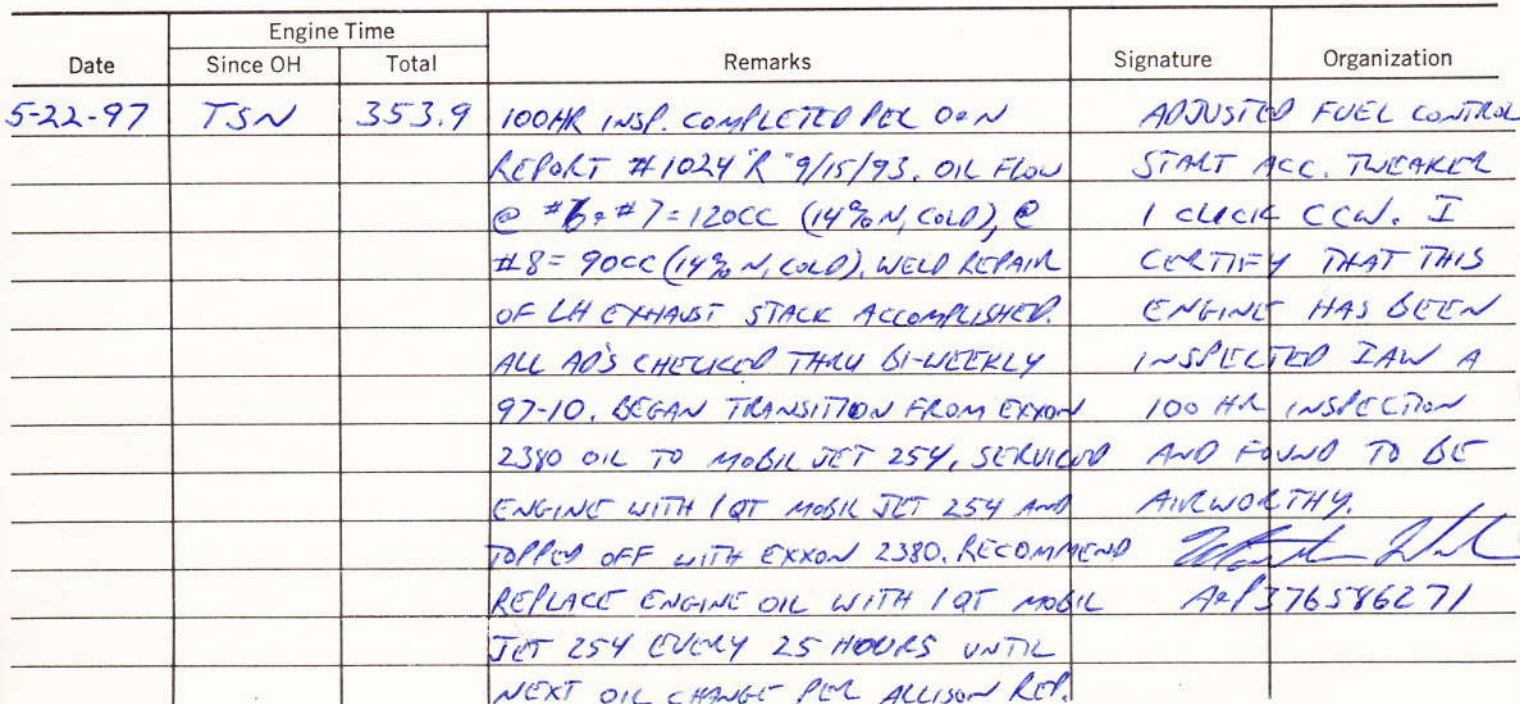 Engine Time
Date Since OH Total Remarks Signature Organization
5-22-97 TSN 353.9 100HR INSP. COMPLETED PER O&M
REPORT #1024 "R" 9/15/93. OIL FLOW
@ #6 & #7 = 120CC (14% N, COLD), @
#8 = 90CC (14% N, COLD). WELD REPAIR
OF LH EXHAUST STACK ACCOMPLISHED.
ALL AD'S CHECKED THRU BI-WEEKLY
97-10. BEGAN TRANSITION FROM EXXON
2380 OIL TO MOBIL JET 254, SERVICED
ENGINE WITH 1 QT MOBIL JET 254 AND
TOPPED OFF WITH EXXON 2380. RECOMMEND
REPLACE ENGINE OIL WITH 1 QT MOBIL
JET 254 EVERY 25 HOURS UNTIL
NEXT OIL CHANGE PER ALLISON REP.
ADJUSTED FUEL CONTROL
START ACC. TWEAKER
1 CLICK CCW. I
CERTIFY THAT THIS
ENGINE HAS BEEN
INSPECTED IAW A
100 HR INSPECTION
AND FOUND TO BE
AIRWORTHY.
A&P 376586271